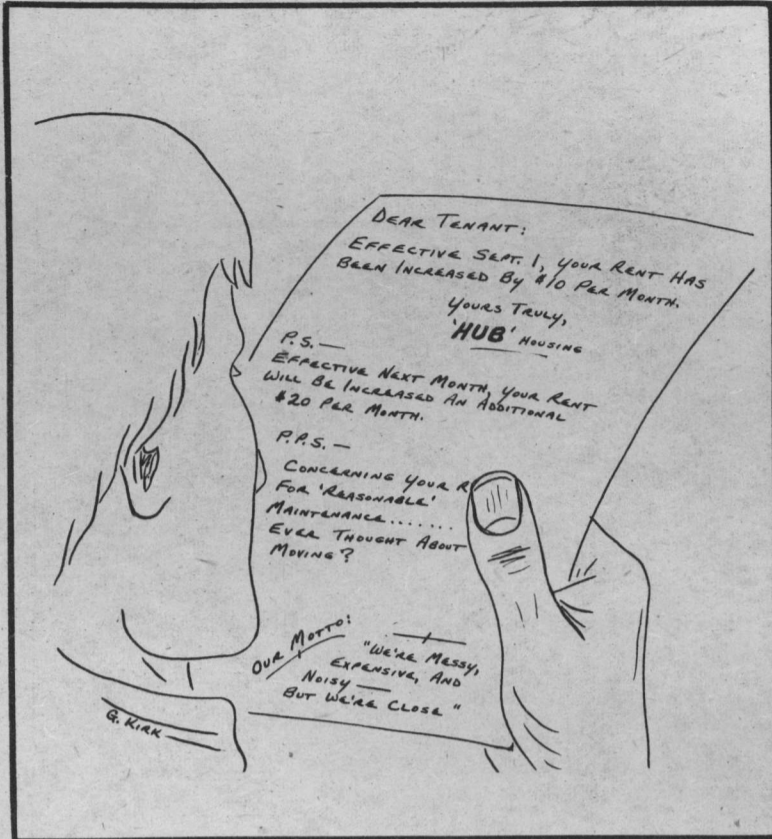 DEAR TENANT:
EFFECTIVE SEPT. 1, YOUR RENT HAS
BEEN INCREASED BY $10 PER MONTH.
YOURS TRULY,
'HUB' HOUSING
P.S. —
EFFECTIVE NEXT MONTH, YOUR RENT
WILL BE INCREASED AN ADDITIONAL
$20 PER MONTH.
P.P.S. —
CONCERNING YOUR R
FOR 'REASONABLE'
MAINTENANCE.......
EVER THOUGHT ABOUT
MOVING?
OUR MOTTO:
"WE'RE MESSY,
EXPENSIVE, AND
NOISY —
BUT WE'RE CLOSE"
G. KIRK